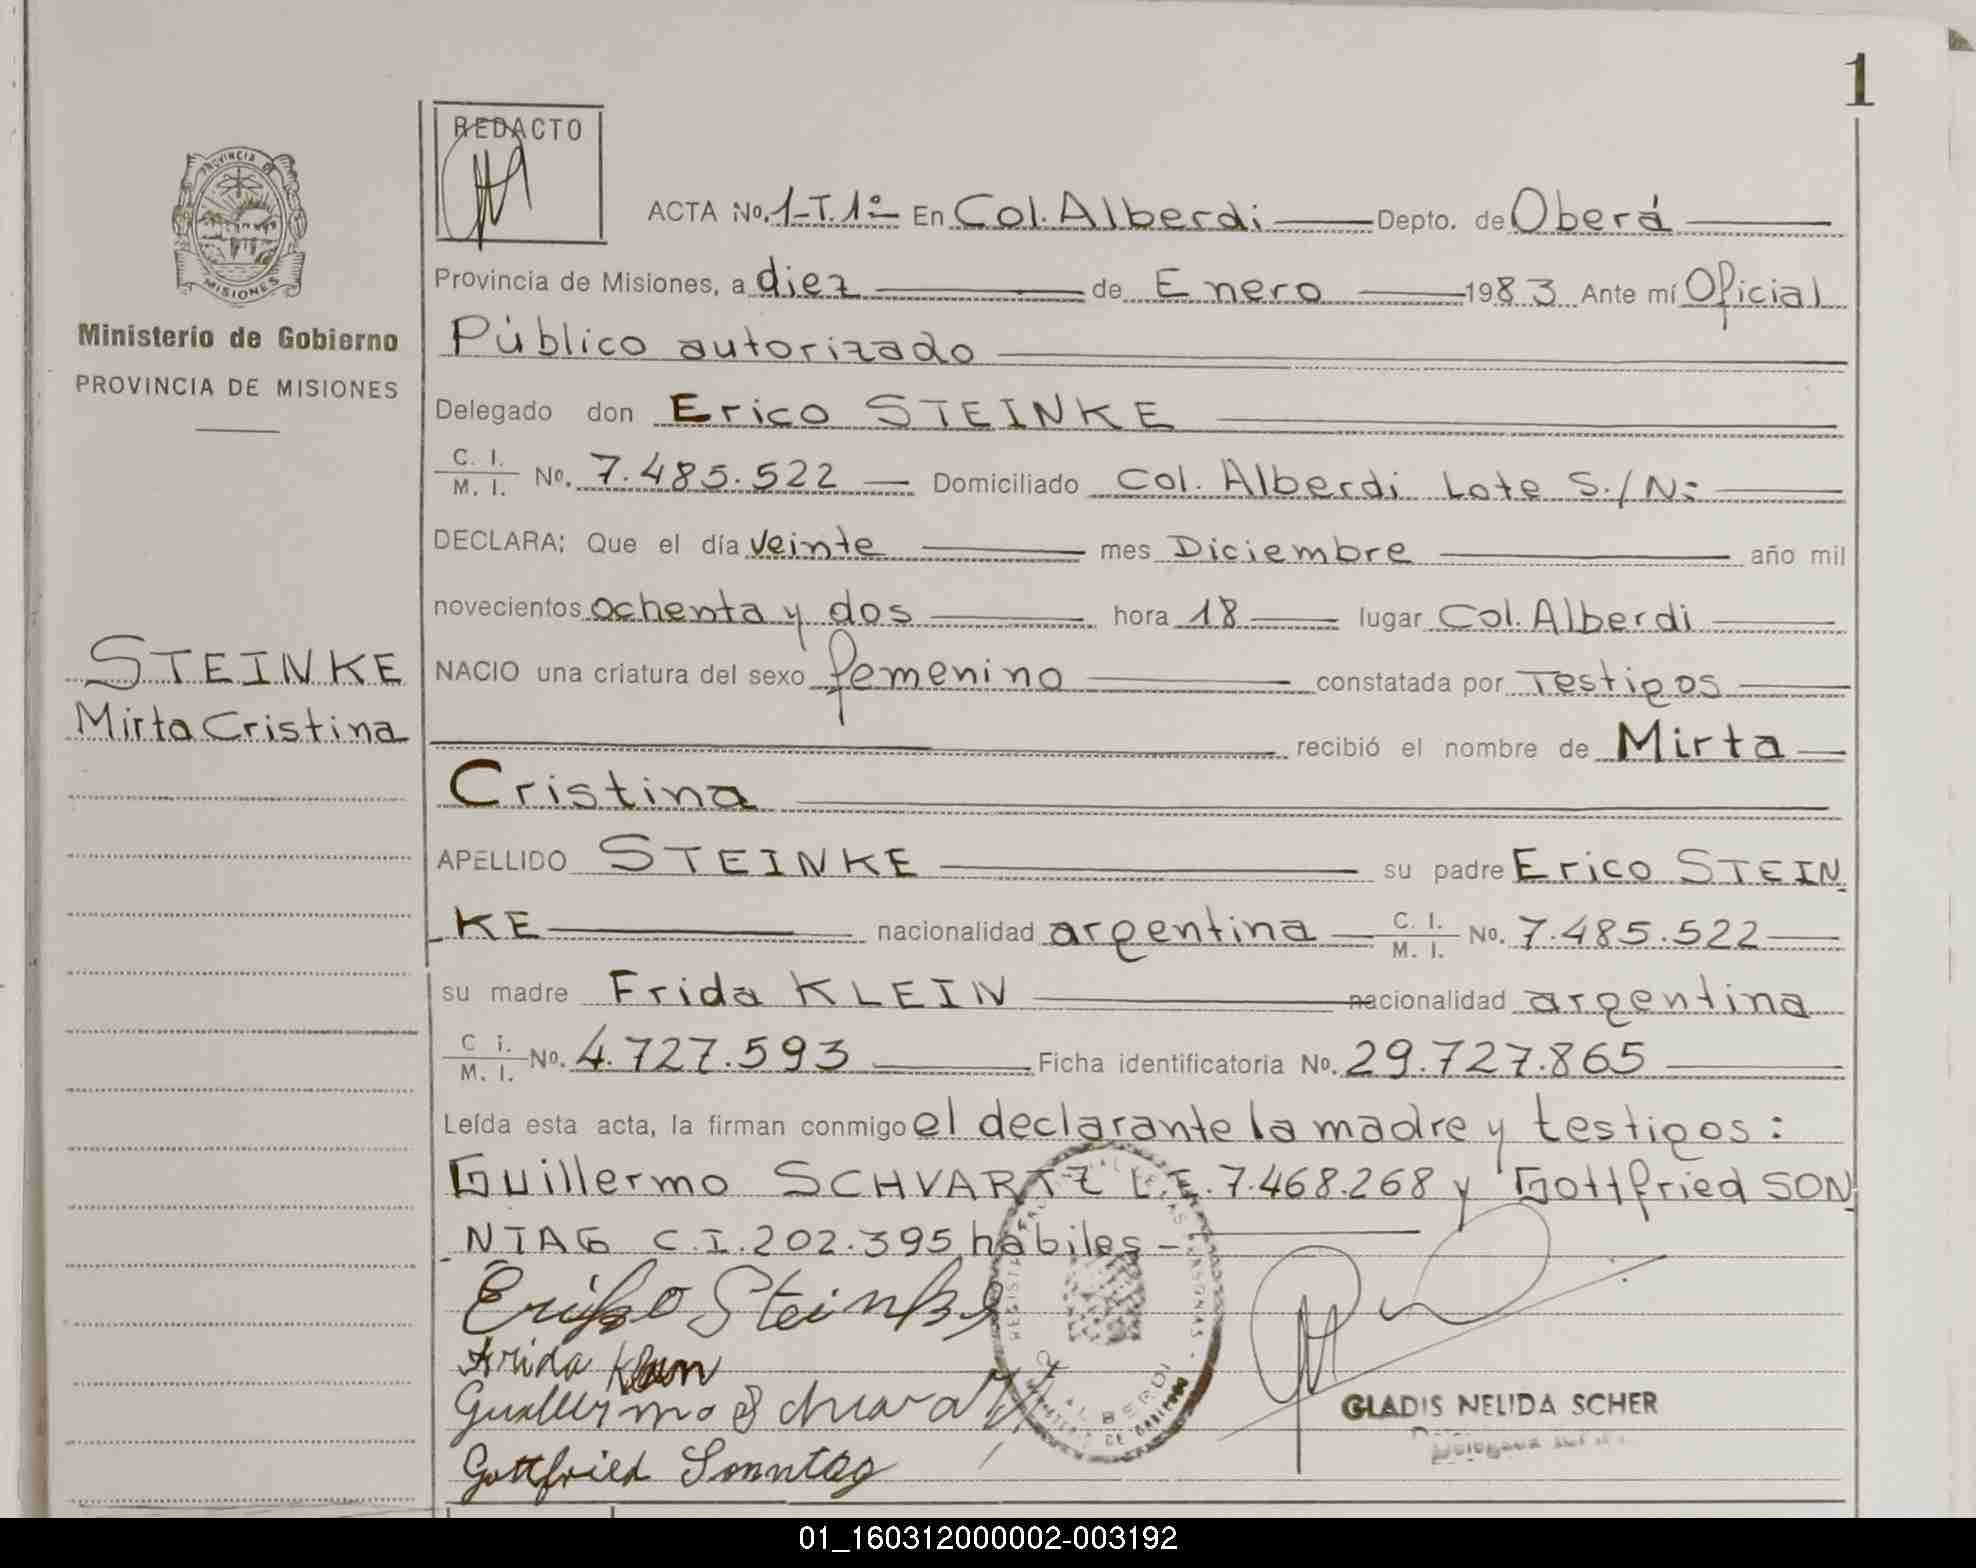 1
REDACTO
ACTA No. 1-T.1º En Col. Alberdi Depto. de Oberá
PROVINCIA DE
MISIONES
Provincia de Misiones, a diez de Enero 1983 Ante mí Oficial
Ministerio de Gobierno
PROVINCIA DE MISIONES
Público autorizado
Delegado don Erico STEINKE
C. I. / M. I. No. 7.485.522 Domiciliado Col. Alberdi Lote S./N:
DECLARA: Que el día veinte mes Diciembre año mil
novecientos ochenta y dos hora 18 lugar Col. Alberdi
STEINKE
Mirta Cristina
NACIO una criatura del sexo femenino constatada por Testigos
recibió el nombre de Mirta
Cristina
APELLIDO STEINKE su padre Erico STEIN
KE nacionalidad argentina C. I. / M. I. No. 7.485.522
su madre Frida KLEIN nacionalidad argentina
C i. / M. I. No. 4.727.593 Ficha identificatoria No. 29.727.865
Leída esta acta, la firman conmigo el declarante la madre y testigos:
Guillermo SCHVARTZ L.E. 7.468.268 y Gottfried SON
NTAG C.I. 202.395 hábiles-
Steinke
Frida
Gottfried Sonntag
ALBERDI
GLADIS NELIDA SCHER
01_160312000002-003192